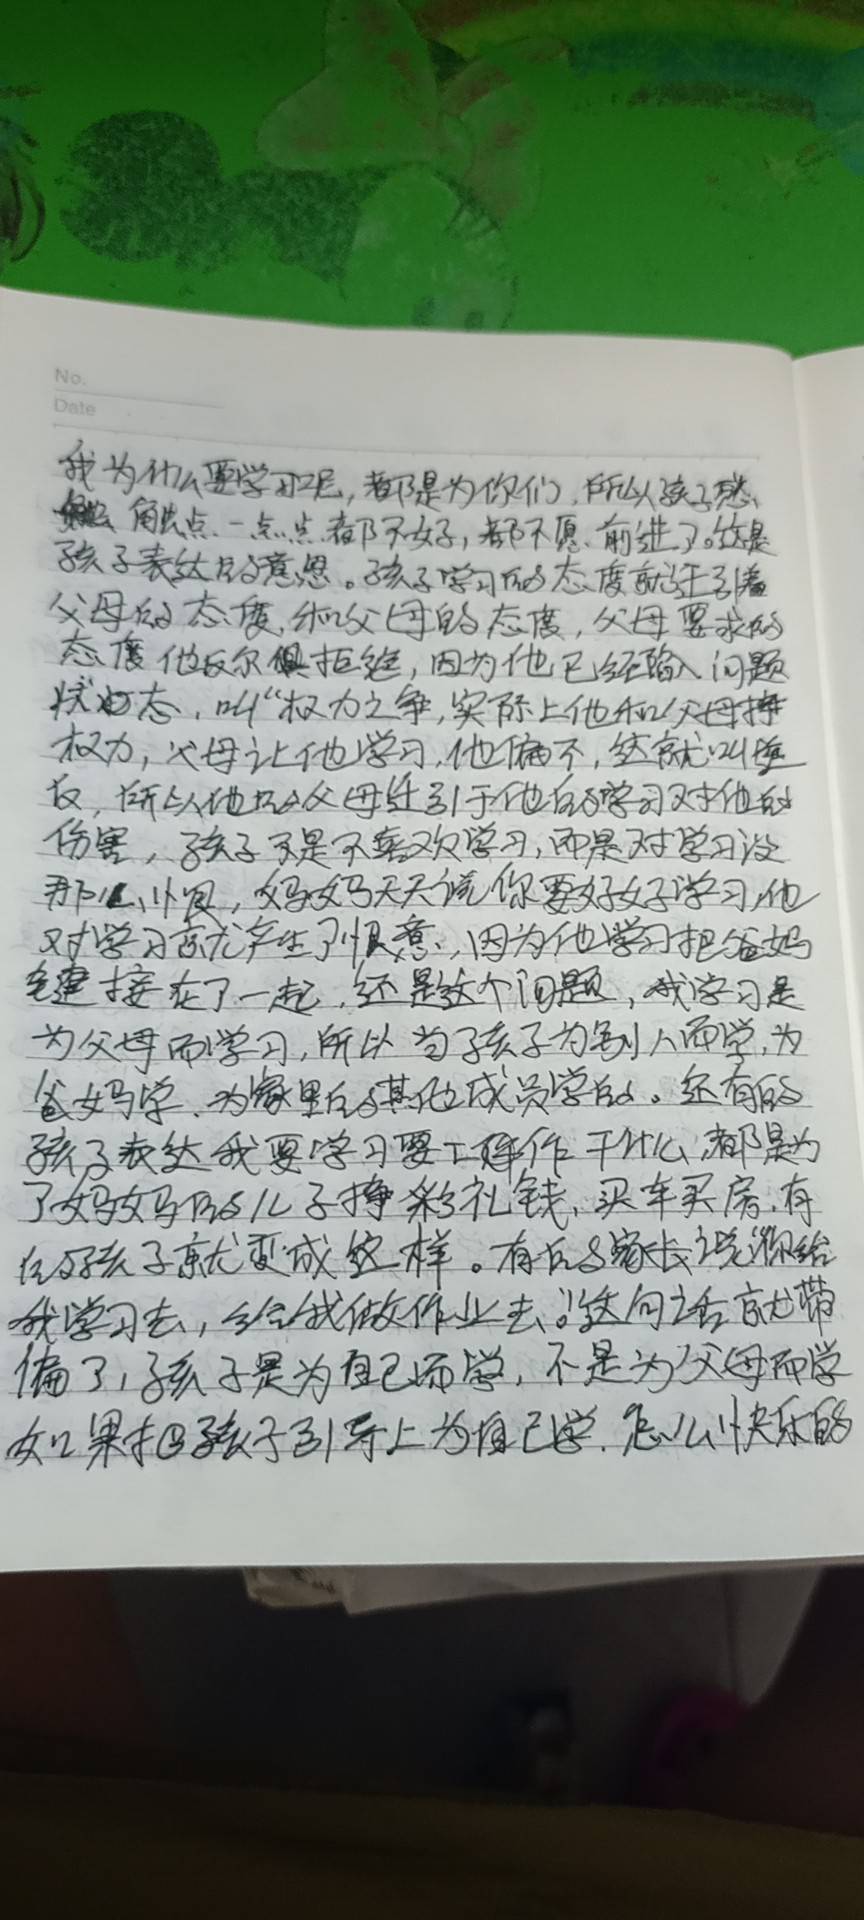 No.
Date
我为什么要学习呢，都是为你们，所以孩子愁
触点、一点点都不好，都不愿前进了。这是
孩子表达的意思。孩子学习的态度就牵引着
父母的态度，和父母的态度，父母要求的
态度他反尔拒绝，因为他已经输入问题
状态，叫“权力之争，实际上他和父母挣
权力，父母让他学习，他偏不，这就叫
反，所以他的父母牵引于他的学习对他的
伤害，孩子不是不喜欢学习，而是对学习没
那么恨，妈妈天天说你要好好学习，他
对学习就产生了恨意，因为他学习把爸妈
链接在了一起，还是这个问题，我学习是
为父母而学习，所以当了孩子为别人而学，为
爸妈学、为家里的其他成员学的。还有的
孩子表达我要学习要工作干什么，都是为
了妈妈的儿子挣彩礼钱，买车买房，有
的孩子就变成这样。有的家长说你给
我学习去，给我做作业去。这句话就带
偏了，孩子是为自己而学，不是为父母而学
如果把孩子引导上为自己学，怎么快乐的